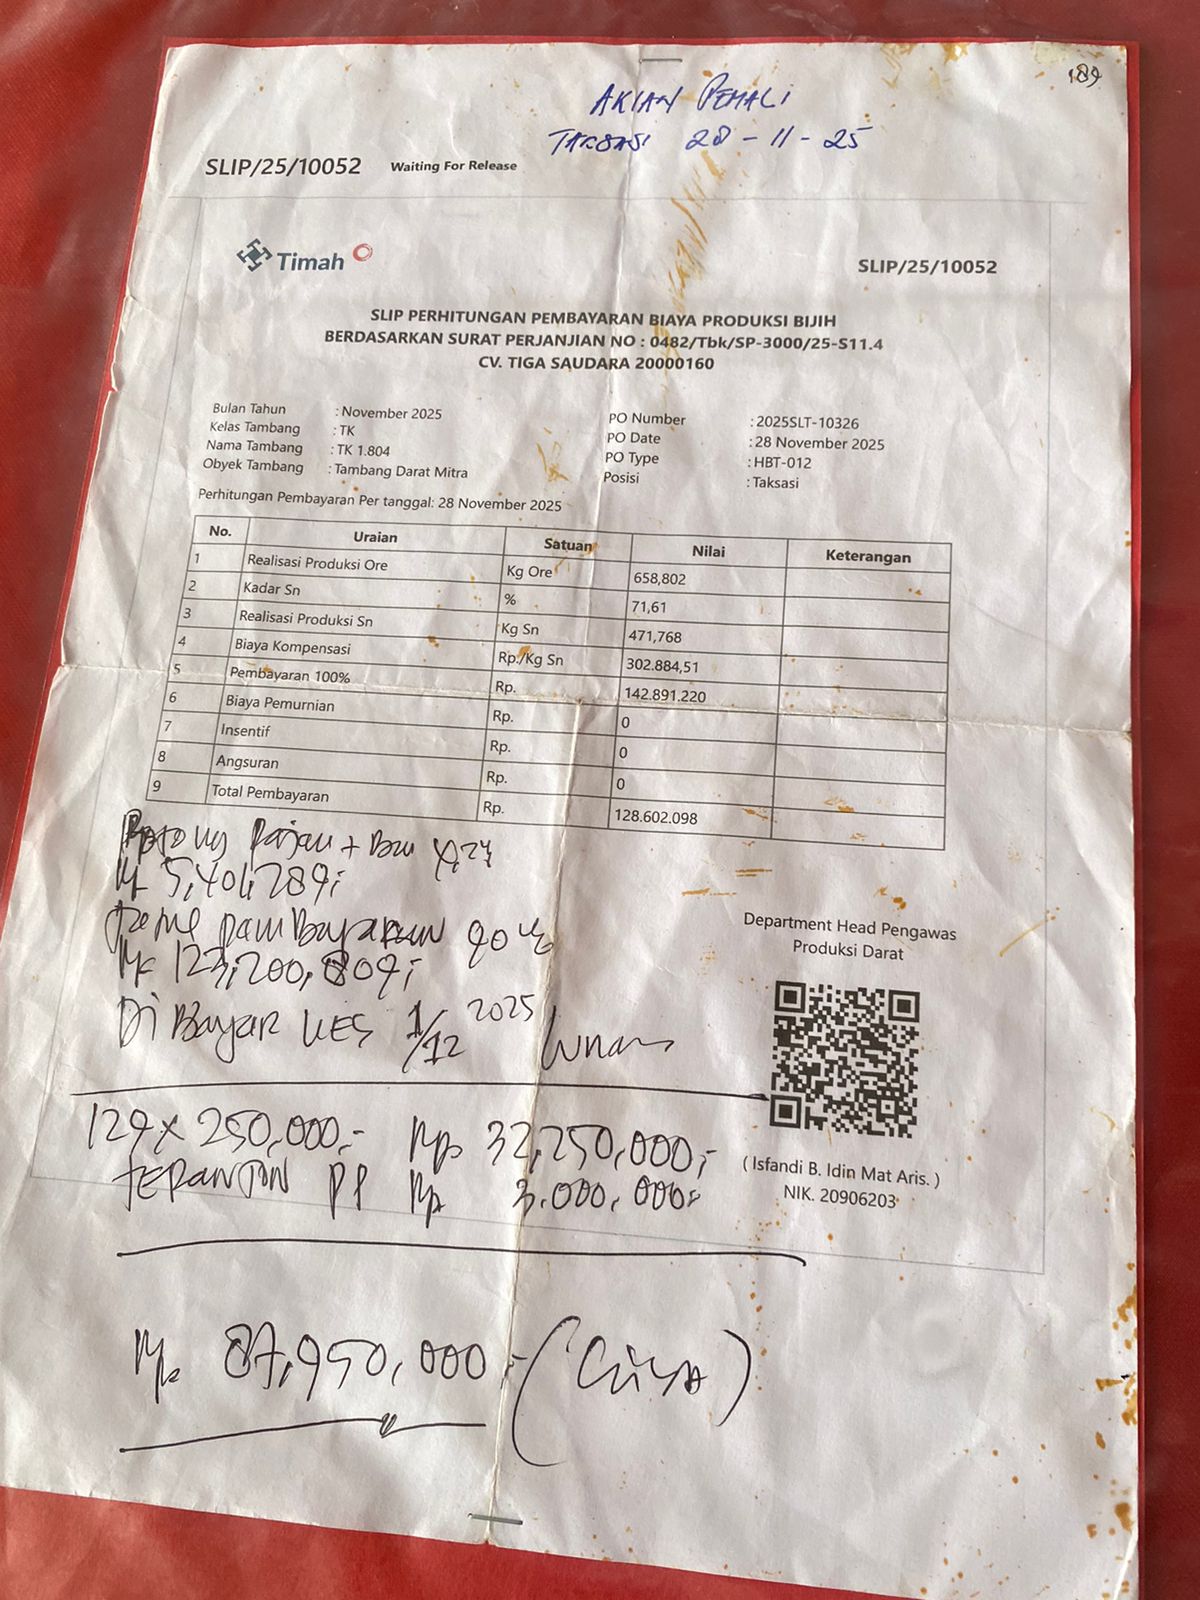 189
AKIAN PEMALI
TAKSASI 28-11-25
SLIP/25/10052 Waiting For Release
Timah
SLIP/25/10052
SLIP PERHITUNGAN PEMBAYARAN BIAYA PRODUKSI BIJIH
BERDASARKAN SURAT PERJANJIAN NO : 0482/Tbk/SP-3000/25-S11.4
CV. TIGA SAUDARA 20000160
Bulan Tahun : November 2025
Kelas Tambang : TK
Nama Tambang : TK 1.804
Obyek Tambang : Tambang Darat Mitra
PO Number : 2025SLT-10326
PO Date : 28 November 2025
PO Type : HBT-012
Posisi : Taksasi
Perhitungan Pembayaran Per tanggal: 28 November 2025
No. Uraian Satuan Nilai Keterangan
1 Realisasi Produksi Ore Kg Ore 658,802
2 Kadar Sn % 71,61
3 Realisasi Produksi Sn Kg Sn 471,768
4 Biaya Kompensasi Rp./Kg Sn 302.884,51
5 Pembayaran 100% Rp. 142.891.220
6 Biaya Pemurnian Rp. 0
7 Insentif Rp. 0
8 Angsuran Rp. 0
9 Total Pembayaran Rp. 128.602.098
Potong pajau +
Rp 5,401,289,-
pembayaran 90%
Rp 123,200,809,-
Di Bayar 1/12 2025 Lunas
Department Head Pengawas
Produksi Darat
( Isfandi B. Idin Mat Aris. )
NIK. 20906203
129 x 250,000,- Rp 32,250,000,-
PP Rp 3.000,000,-
Rp 87,950,000,- (